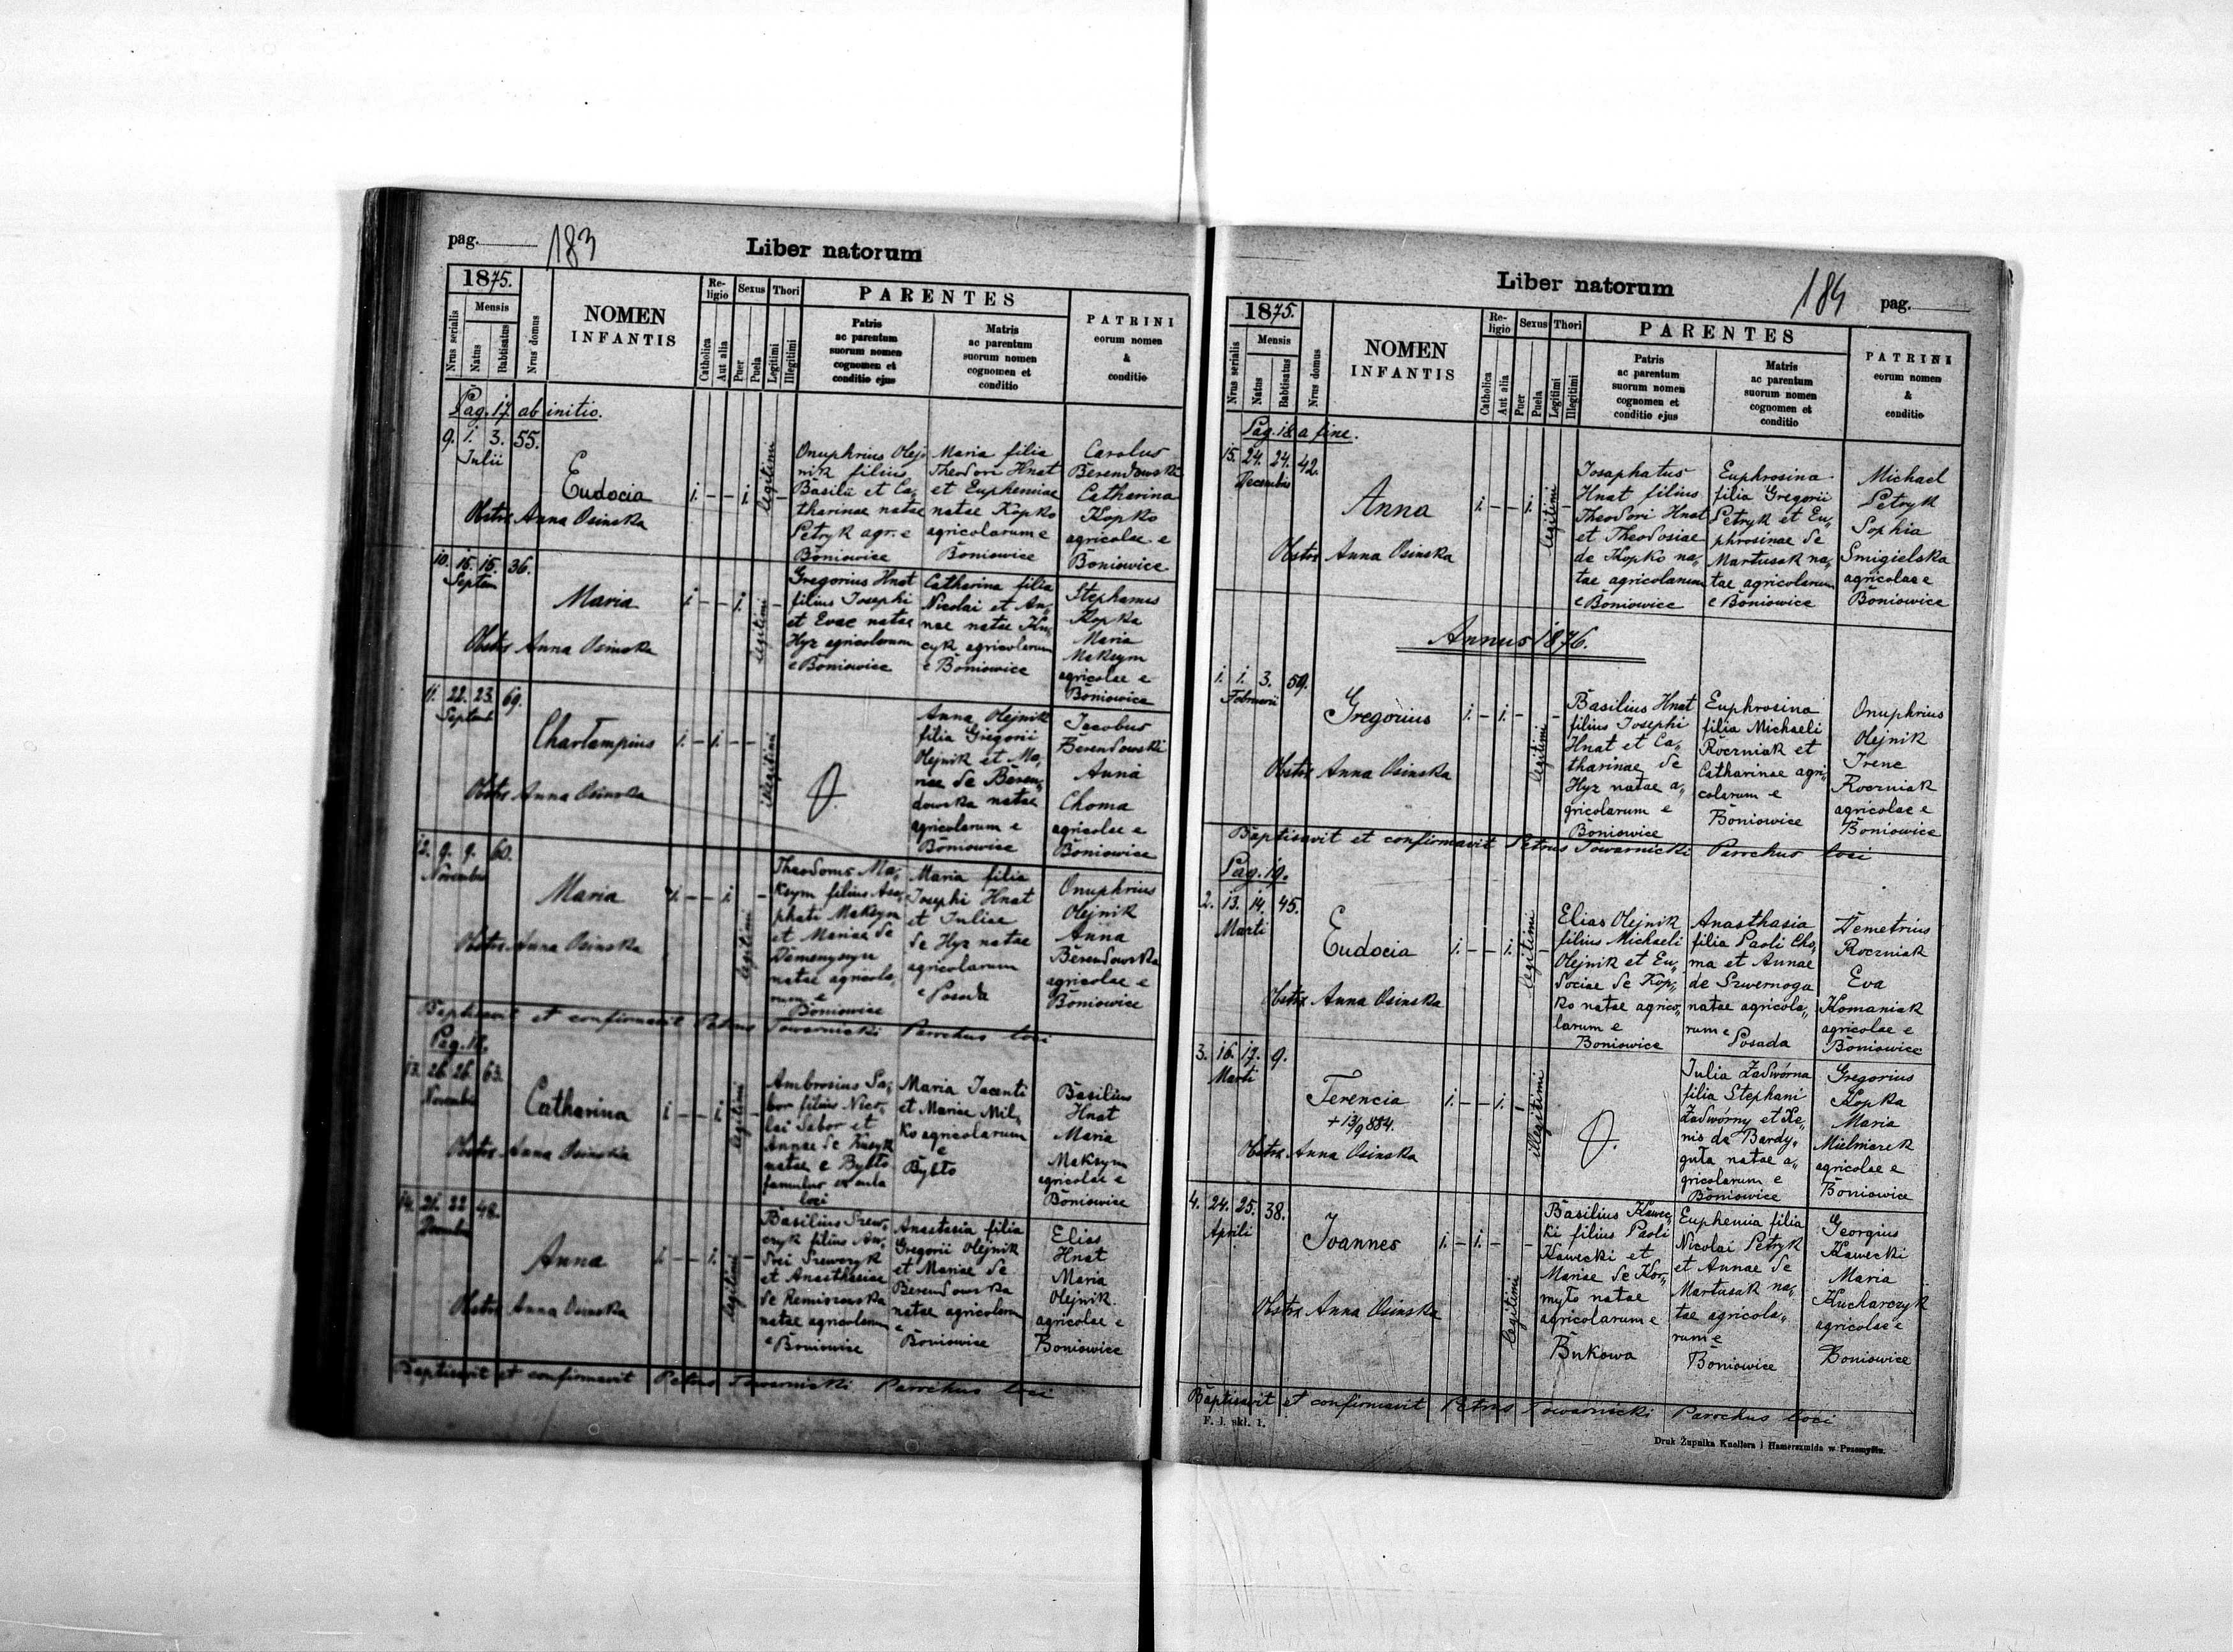 pag. 183
Liber natorum
1875.
Mensis
Nrus serialis
Natus
Babtisatus
Nrus domus
NOMEN
INFANTIS
Religio
Catholica
Aut alia
Sexus
Puer
Puela
Thori
Legitimi
Illegitimi
PARENTES
Patris
ac parentum
suorum nomen
cognomen et
conditio ejus
Matris
ac parentum
suorum nomen
cognomen et
conditio
PATRINI
eorum nomen
&
conditio
Pag. 17 ab initio.
9. 1. 3. 55.
Julii
Eudocia
1. – – 1. –
legitimi
Obstrx Anna Osinska
Onuphrius Olej
nik filius
Basilii et Ca„
tharinae natae
Petryk agr. e
Boniowice
Maria filia
Theodori Hnat
et Eupheniae
natae Kopko
agricolarum e
Boniowice
Carolus
Berendowski
Catharina
Kopko
agricolae e
Boniowice
10. 15. 15. 36.
Septem
Maria
1. – – 1. –
legitimi
Obstrx Anna Osinska
Gregorius Hnat
filius Josephi
et Evae natae
Hyz agricolarum
e Boniowice
Catharina filia
Nicolai et An„
nae natae Ku„
cyk agricolarum
e Boniowice
Stephanus
Kopka
Maria
Maksym
agricolae e
Boniowice
11. 22. 23. 69.
Septemb
Charlampius
1. – 1. – –
illegitimi
Obstrx Anna Osinska
Anna Olejnik
filia Gregorii
Olejnik et Ma„
riae de Beren„
dowska natae
agricolarum e
Boniowice
Jacobus
Berendowski
Anna
Choma
agricolae e
Boniowice
12. 9. 9. 60.
Novembr
Maria
1. – – 1. –
legitimi
Obstrx Anna Osinska
Theodorus Ma„
ksym filius Asa„
phati Maksym
et Mariae de
natae agricola„
rum e
Boniowice
Maria filia
Josephi Hnat
et Juliae
de Hyz natae
agricolarum
e Posada
Onuphrius
Olejnik
Anna
Berendowska
agricolae e
Boniowice
Baptisavit et confirmavit Petrus Towarnicki Parochus loci
Pag. 18.
13. 26. 26. 63.
Novembr
Catharina
1. – – 1. –
legitimi
Obstrx Anna Osinska
Ambrosius Sa„
bor filius Nico„
lai Sabor et
Annae de Kusyk
natae e Bybło
famulus ex aula
loci
Maria Jacenti
et Mariae Mil„
ko agricolarum
e
Bybło
Basilius
Hnat
Maria
Maksym
agricolae e
Boniowice
14. 21. 22. 48.
Decembr
Anna
1. – – 1. –
legitimi
Obstrx Anna Osinska
Basilius Szew„
czyk filius An„
drei Szewczyk
et Anasthasiae
de Remiszewska
natae agricolarum
e Boniowice
Anastasia filia
Gregorii Olejnik
et Mariae de
Berendowska
natae agricolarum
e
Boniowice
Elias
Hnat
Maria
Olejnik.
agricolae e
Boniowice
Baptisavit et confirmavit Petrus Towarnicki Parochus loci
Liber natorum
184 pag.
1875.
Mensis
Nrus serialis
Natus
Babtisatus
Nrus domus
NOMEN
INFANTIS
Religio
Catholica
Aut alia
Sexus
Puer
Puela
Thori
Legitimi
Illegitimi
PARENTES
Patris
ac parentum
suorum nomen
cognomen et
conditio ejus
Matris
ac parentum
suorum nomen
cognomen et
conditio
PATRINI
eorum nomen
&
conditio
Pag. 18 a fine.
15. 24. 24. 42.
Decembris
Anna
1. – – 1. –
legitimi
Obstrx Anna Osinska
Josaphatus
Hnat filius
Theodori Hnat
et Theodosiae
de Kopko na„
tae agricolarum
e Boniowice
Euphrosina
filia Gregorii
Petryk et Eu„
phrosinae de
Martusak na„
tae agricolarum
e Boniowice
Michael
Petryk
Sophia
Smigielska
agricolae e
Boniowice
Annus 1876.
1. 1. 3. 59.
Februarii
Gregorius
1. – 1. – –
legitimi
Obstrx Anna Osinska
Basilius Hnat
filius Josephi
Hnat et Ca„
tharinae de
Hyz natae a„
gricolarum e
Boniowice
Euphrosina
filia Michaeli
Roczniak et
Catharinae agri„
colarum e
Boniowice
Onuphrius
Olejnik
Irene
Roczniak
agricolae e
Boniowice
Baptisavit et confirmavit Petrus Towarnicki Parochus loci
Pag. 19.
2. 13. 14. 45.
Marti
Eudocia
1. – – 1. –
legitimi
Obstrx Anna Osinska
Elias Olejnik
filius Michaeli
Olejnik et Eu„
dociae de Kop„
ko natae agrico„
larum e
Boniowice
Anasthasia
filia Paoli Cho„
ma et Annae
de Szwernoga
natae agricola„
rum e
Posada
Demetrius
Roczniak
Eva
Komaniak
agricolae e
Boniowice
3. 16. 17. 9.
Marti
Ferencia
+ 13/9 884.
1. – – 1. –
illegitimi
Obstrx Anna Osinska
Julia Zadwórna
filia Stephani
Zadwórny et Xe„
nis de Bardy„
guła natae a„
gricolarum e
Boniowice
Gregorius
Kopka
Maria
Mielniarek
agricolae e
Boniowice
4. 24. 25. 38.
Aprili
Joannes
1. – 1. – –
legitimi
Obstrx Anna Osinska
Basilius Kawec„
ki filius Paoli
Kawecki et
Mariae de Kor„
myło natae
agricolarum e
Bukowa
Euphemia filia
Nicolai Petryk
et Annae de
Martusak na„
tae agricola„
rum e
Boniowice
Georgius
Kawecki
Maria
Kucharczyk
agricolae e
Boniowice
Baptisavit et confirmavit Petrus Towarnicki Parochus loci
F. I. skł. 1.
Druk Żupnika Knollera i Hamerszmida w Przemyślu.